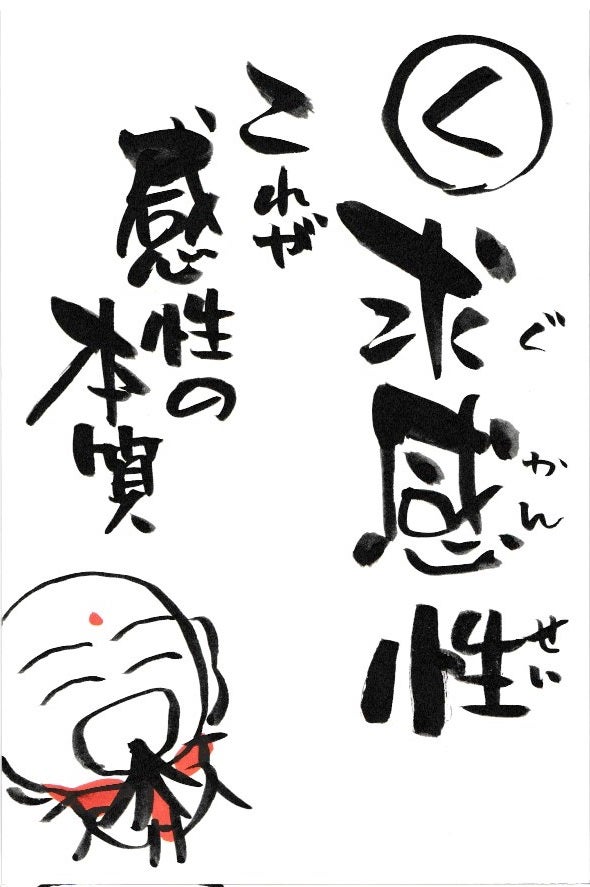 く
求感性
ぐかんせい
これが
感性の
本質